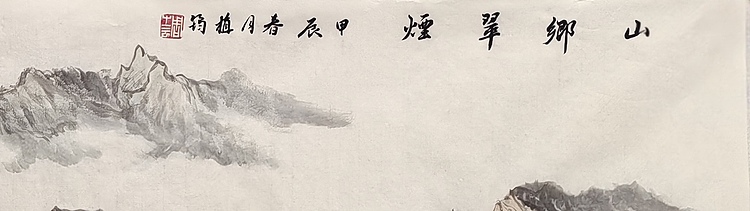 山鄉翠煙 甲辰春月植